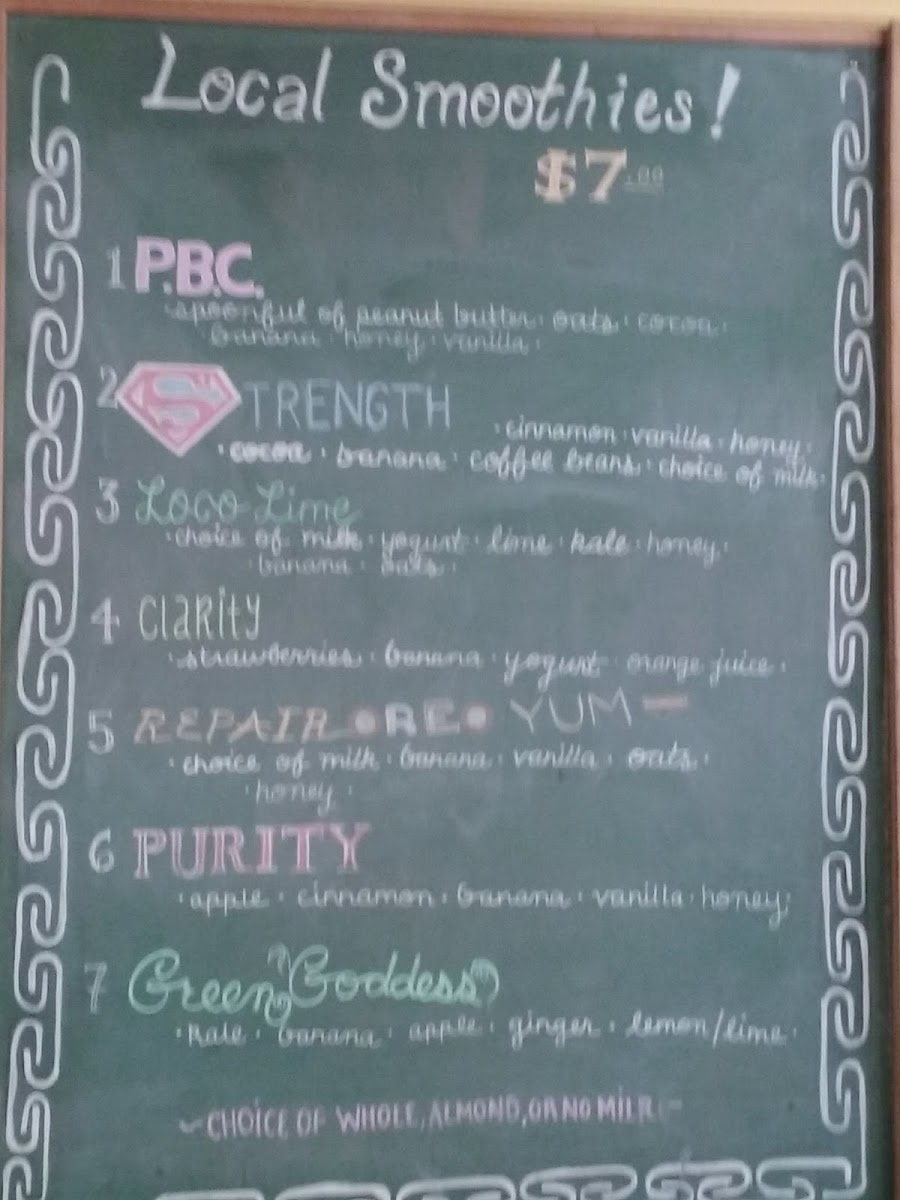 Local Smoothies!
$7.00
1 P.B.C.
· spoonful of peanut butter · oats · cocoa ·
banana · honey · vanilla ·
2 STRENGTH
· cinnamon · vanilla · honey ·
· cocoa · banana · coffee beans · choice of milk ·
3 Loco Lime
· choice of milk · yogurt · lime · kale · honey ·
· banana · oats ·
4 Clarity
· strawberries · banana · yogurt · orange juice ·
5 REPAIR • RE • YUM —
· choice of milk · banana · vanilla · oats ·
· honey ·
6 PURITY
· apple · cinnamon · banana · vanilla · honey ·
7 Green Goddess
· kale · banana · apple · ginger · lemon/lime ·
~ CHOICE OF WHOLE, ALMOND, OR NO MILK ~